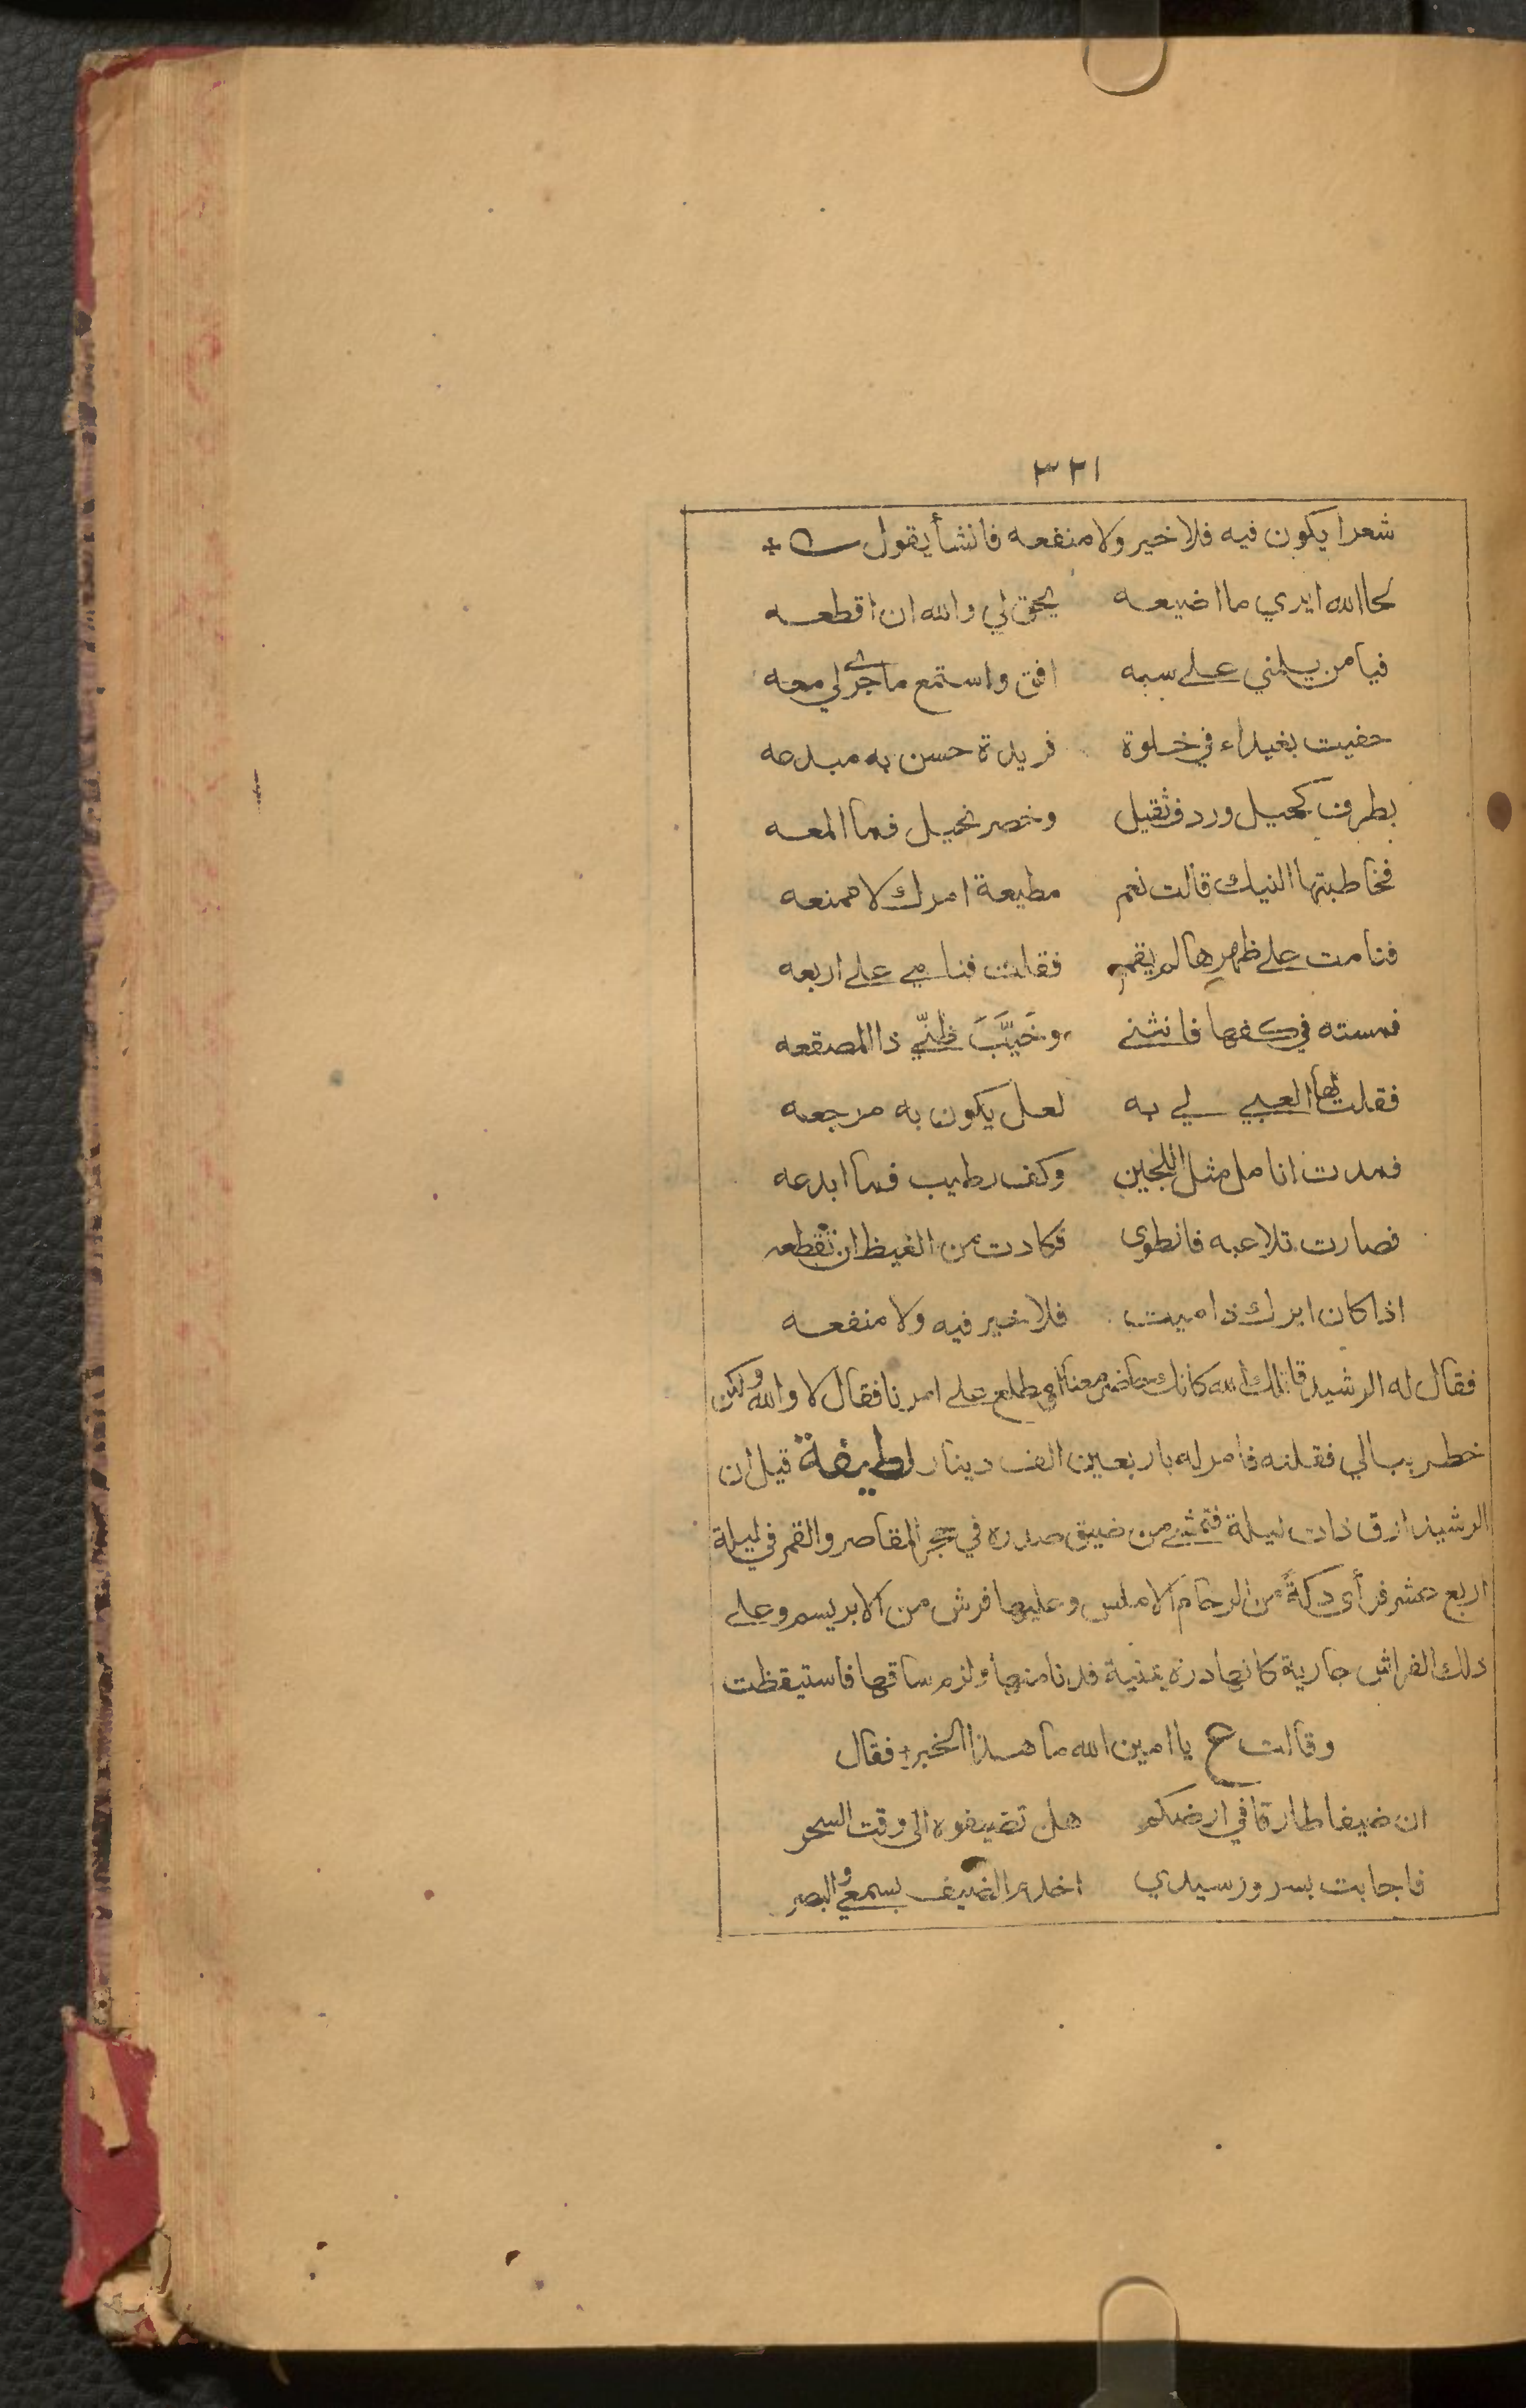 ٣٢١
شعرا يكون فيه فلا خير ولا منفعه فانشأ يقول
لحا الله ايري ما اضيعه يحق لي والله ان اقطعه
فيا من يلمني على سبه افق واستمع ما جرى لي معه
حضيت بغيداء في خلوة فريدة حسن به مبدعه
بطرف كحيل وردف ثقيل وخصر نحيل فما المعه
فخاطبتها النيك قالت نعم مطيعة امرك لا ممنعه
فنامت على ظهرها لم يقم فقلت فنامي على اربعه
فمسته في كفها فانثنى وخَيَّبَ ظنّي ذا المصقعه
فقلت لها العبي لي به لعل يكون به مرجعه
فمدت انامل مثل اللجين وكف رطيب فما ابدعه
فصارت تلاعبه فانطوى فكادت من الغيظ ان تقطعه
اذا كان ايرك ذا ميت فلا خير فيه ولا منفعه
فقال له الرشيد قاتلك الله كانك حاضر معنا مطلع على امرنا فقال لا والله ولكن
خطر ببالي فقلته فامر له باربعين الف دينار لطيفة قيل ان
الرشيد ارق ذات ليلة فتمشى من ضيق صدره في حجر المقاصر والقمر في ليلة
اربع عشر فرأى دكةً من الرخام الاملس وعليها فرش من الابريسم وعلى
ذلك الفراش جارية كانها درة فدنا منها ولزم ساقها فاستيقظت
وقالت يا امين الله ما هذا الخبر فقال
ان ضيفا طارقا في ارضكم هل تضيفوه الى وقت السحر
فاجابت بسرور سيدي اخدم الضيف بسمعي والبصر